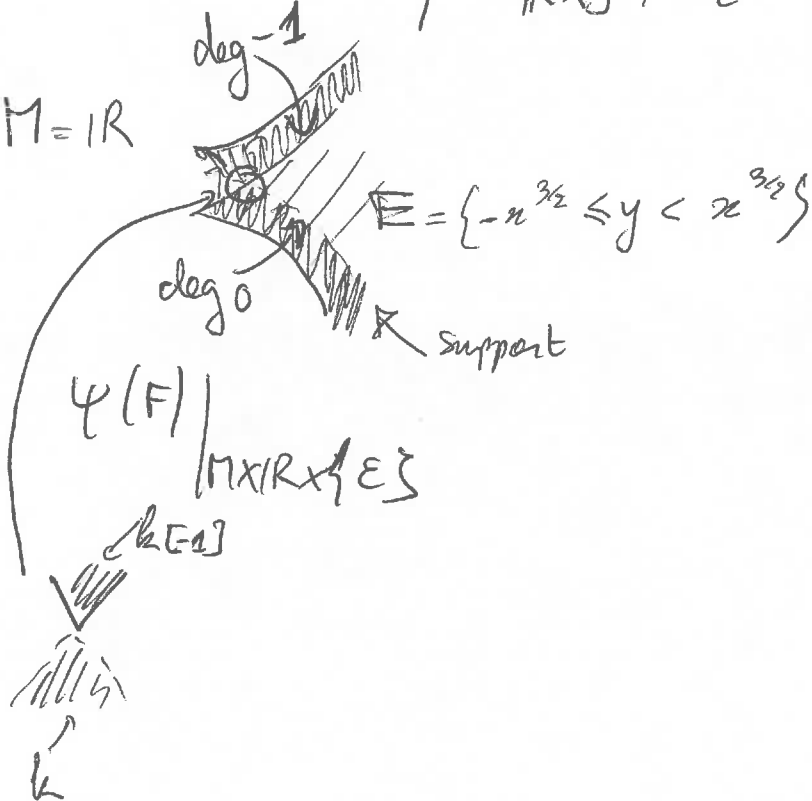 deg -1
M = IR
E = {-x^{3/2} ≤ y < x^{3/2}}
deg 0
support
Ψ(F)|_{M×IR×{ε}}
k[-1]
k